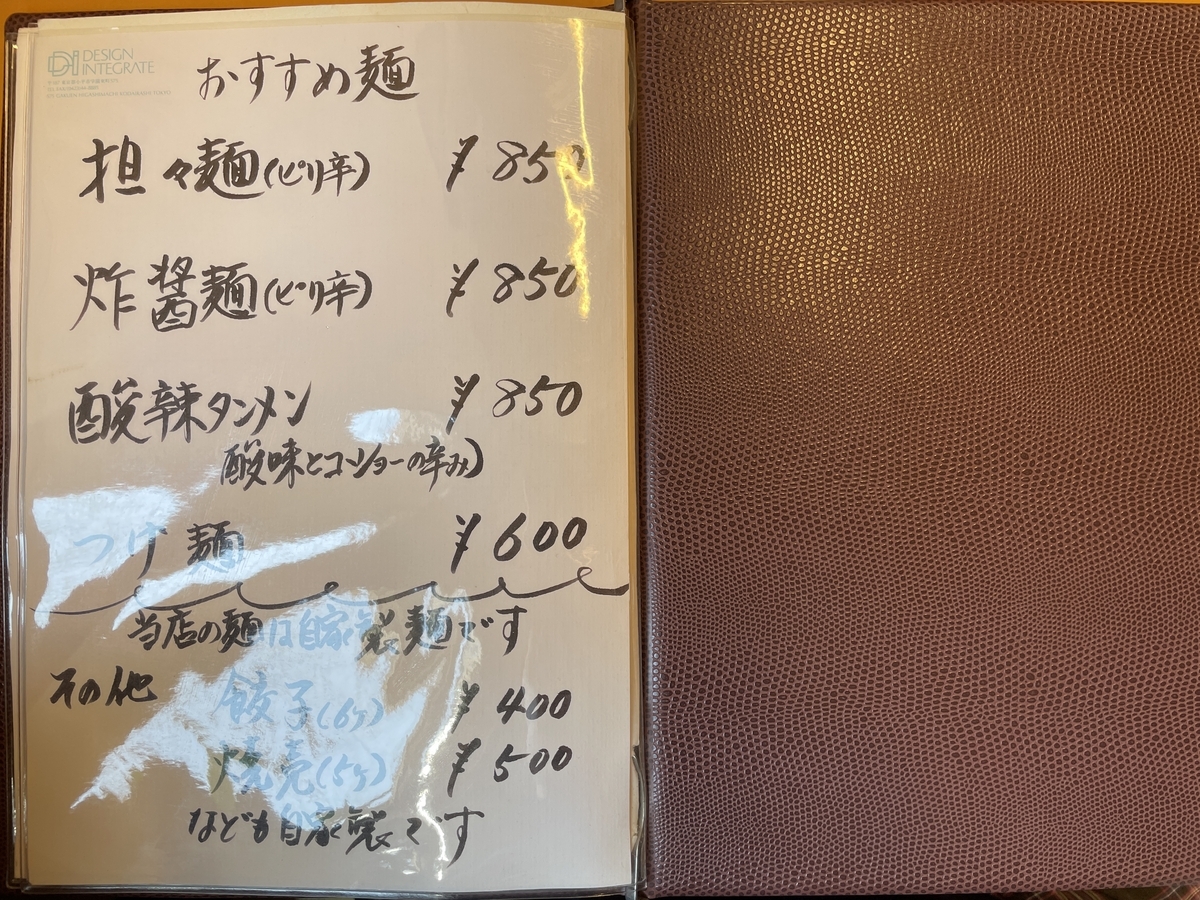 DESIGN
INTEGRATE
おすすめ麺
担々麺(ピリ辛) ¥850
炸醤麺(ピリ辛) ¥850
酸辣タンメン ¥850
酸味とコショーの辛み)
つけ麺 ¥600
当店の麺は自家製麺です
その他 餃子(6ヶ) ¥400
焼売(5ヶ) ¥500
なども自家製です